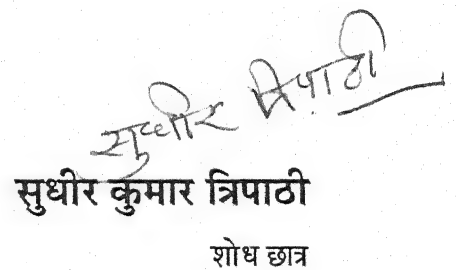 सुधीर त्रिपाठी
सुधीर कुमार त्रिपाठी
शोध छात्र